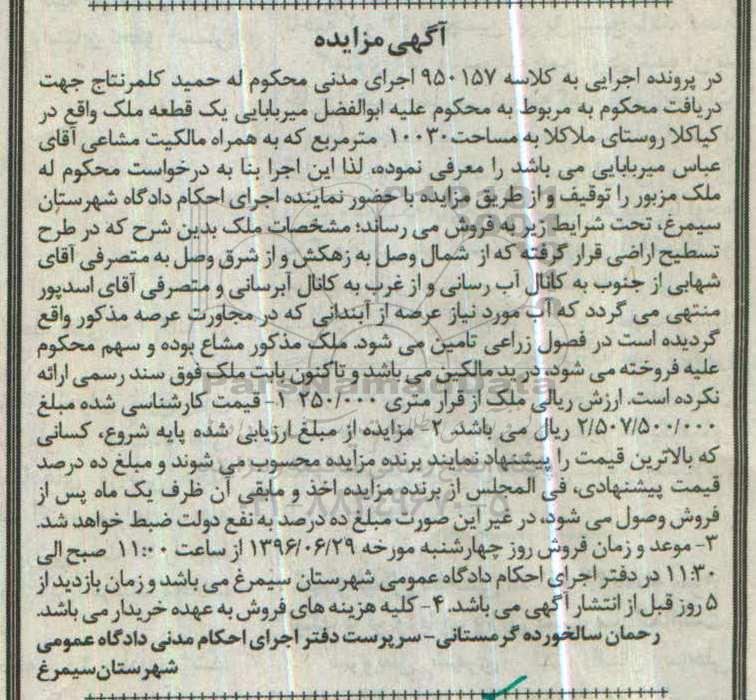 آگهی مزایده
در پرونده اجرایی به کلاسه ۹۵۰۱۵۷ اجرای مدنی محکوم له حمید کلمرنتاج جهت
دریافت محکوم به مربوط به محکوم علیه ابوالفضل میربابایی یک قطعه ملک واقع در
کیاکلا روستای ملاکلا به مساحت۱۰۰۳۰ مترمربع که به همراه مالکیت مشاعی آقای
عباس میربابایی می باشد را معرفی نموده، لذا این اجرا بنا به درخواست محکوم له
ملک مزبور را توقیف و از طریق مزایده با حضور نماینده اجرای احکام دادگاه شهرستان
سیمرغ، تحت شرایط زیر به فروش می رساند؛ مشخصات ملک بدین شرح که در طرح
تسطیح اراضی قرار گرفته که از شمال وصل به زهکش و از شرق وصل به متصرفی آقای
شهابی از جنوب به کانال آب رسانی و از غرب به کانال آبرسانی و متصرفی آقای اسدپور
منتهی می گردد که آب مورد نیاز عرصه از آبندانی که در مجاورت عرصه مذکور واقع
گردیده است در فصول زراعی تامین می شود. ملک مذکور مشاع بوده و سهم محکوم
علیه فروخته می شود، در ید مالکین می باشد و تاکنون بابت ملک فوق سند رسمی ارائه
نکرده است. ارزش ریالی ملک از قرار متری ۲۵۰/۰۰۰ ۱- قیمت کارشناسی شده مبلغ
۲/۵۰۷/۵۰۰/۰۰۰ ریال می باشد. ۲- مزایده از مبلغ ارزیابی شده پایه شروع، کسانی
که بالاترین قیمت را پیشنهاد نمایند برنده مزایده محسوب می شوند و مبلغ ده درصد
قیمت پیشنهادی، فی المجلس از برنده مزایده اخذ و مابقی آن ظرف یک ماه پس از
فروش وصول می شود، در غیر این صورت مبلغ ده درصد به نفع دولت ضبط خواهد شد.
۳- موعد و زمان فروش روز چهارشنبه مورخه ۱۳۹۶/۰۶/۲۹ از ساعت ۱۱:۰۰ صبح الی
۱۱:۳۰ در دفتر اجرای احکام دادگاه عمومی شهرستان سیمرغ می باشد و زمان بازدید از
۵ روز قبل از انتشار آگهی می باشد. ۴- کلیه هزینه های فروش به عهده خریدار می باشد.
رحمان سالخورده گرمستانی- سرپرست دفتر اجرای احکام مدنی دادگاه عمومی
شهرستان سیمرغ
ParsNamadData